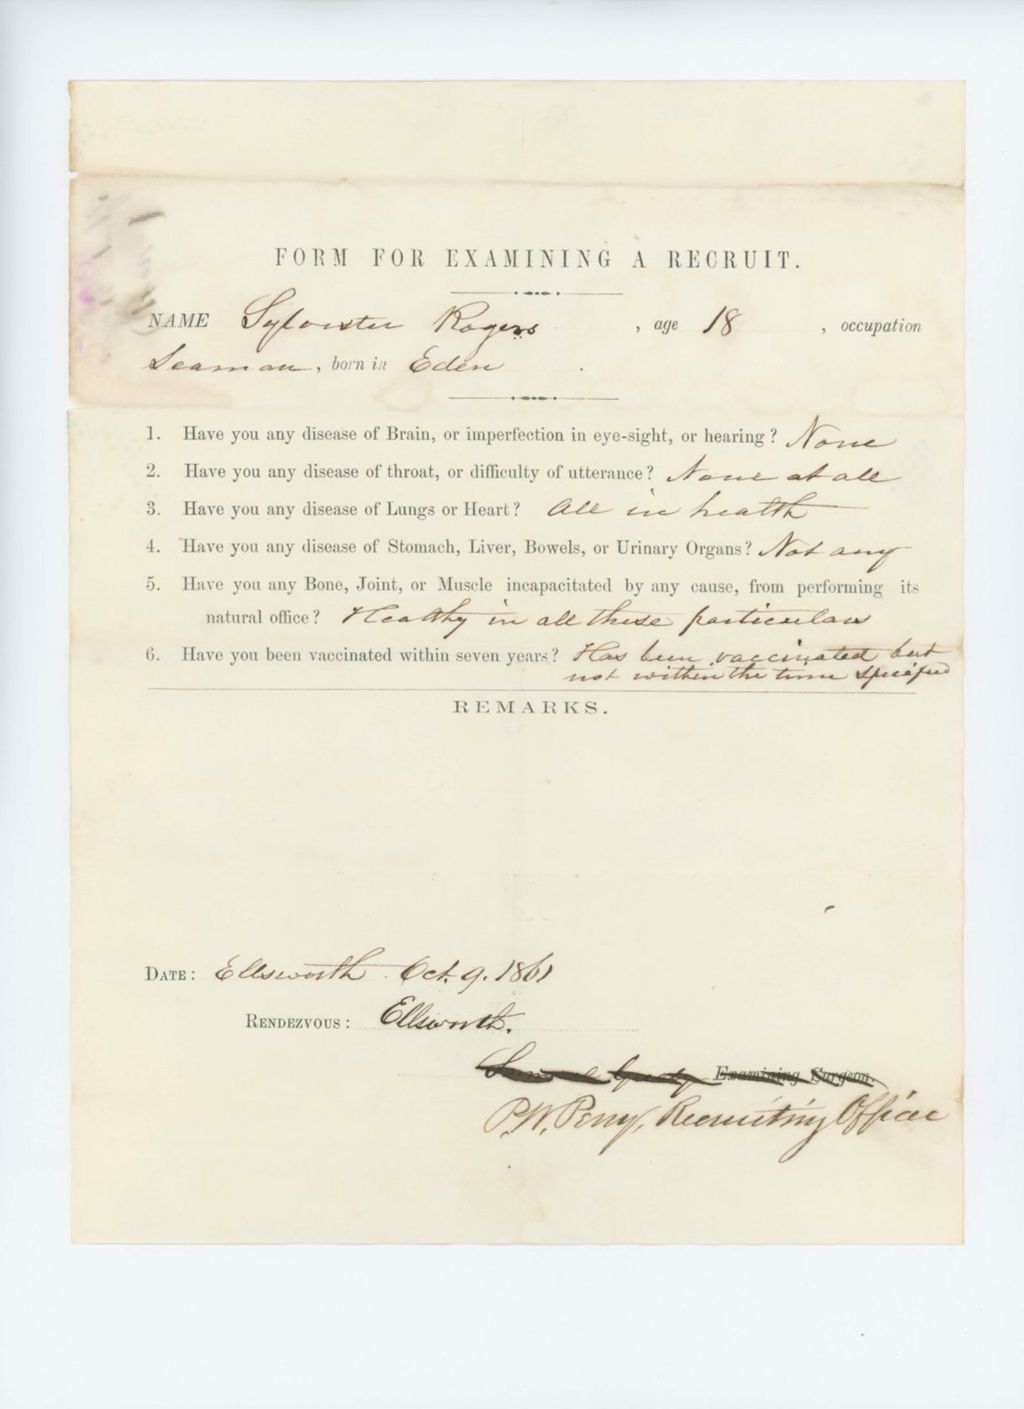 FORM FOR EXAMINING A RECRUIT.
NAME Sylvester Rogers , age 18 , occupation
Seaman , born in Eden .
1. Have you any disease of Brain, or imperfection in eye-sight, or hearing? None
2. Have you any disease of throat, or difficulty of utterance? None at all
3. Have you any disease of Lungs or Heart? All in health
4. Have you any disease of Stomach, Liver, Bowels, or Urinary Organs? Not any
5. Have you any Bone, Joint, or Muscle incapacitated by any cause, from performing its
natural office? Healthy in all these particulars
6. Have you been vaccinated within seven years? Has been vaccinated but
not within the time specified
REMARKS.
DATE: Ellsworth Oct. 9. 1861
RENDEZVOUS: Ellsworth.
Examining Surgeon.
P.W. Perry, Recruiting Officer